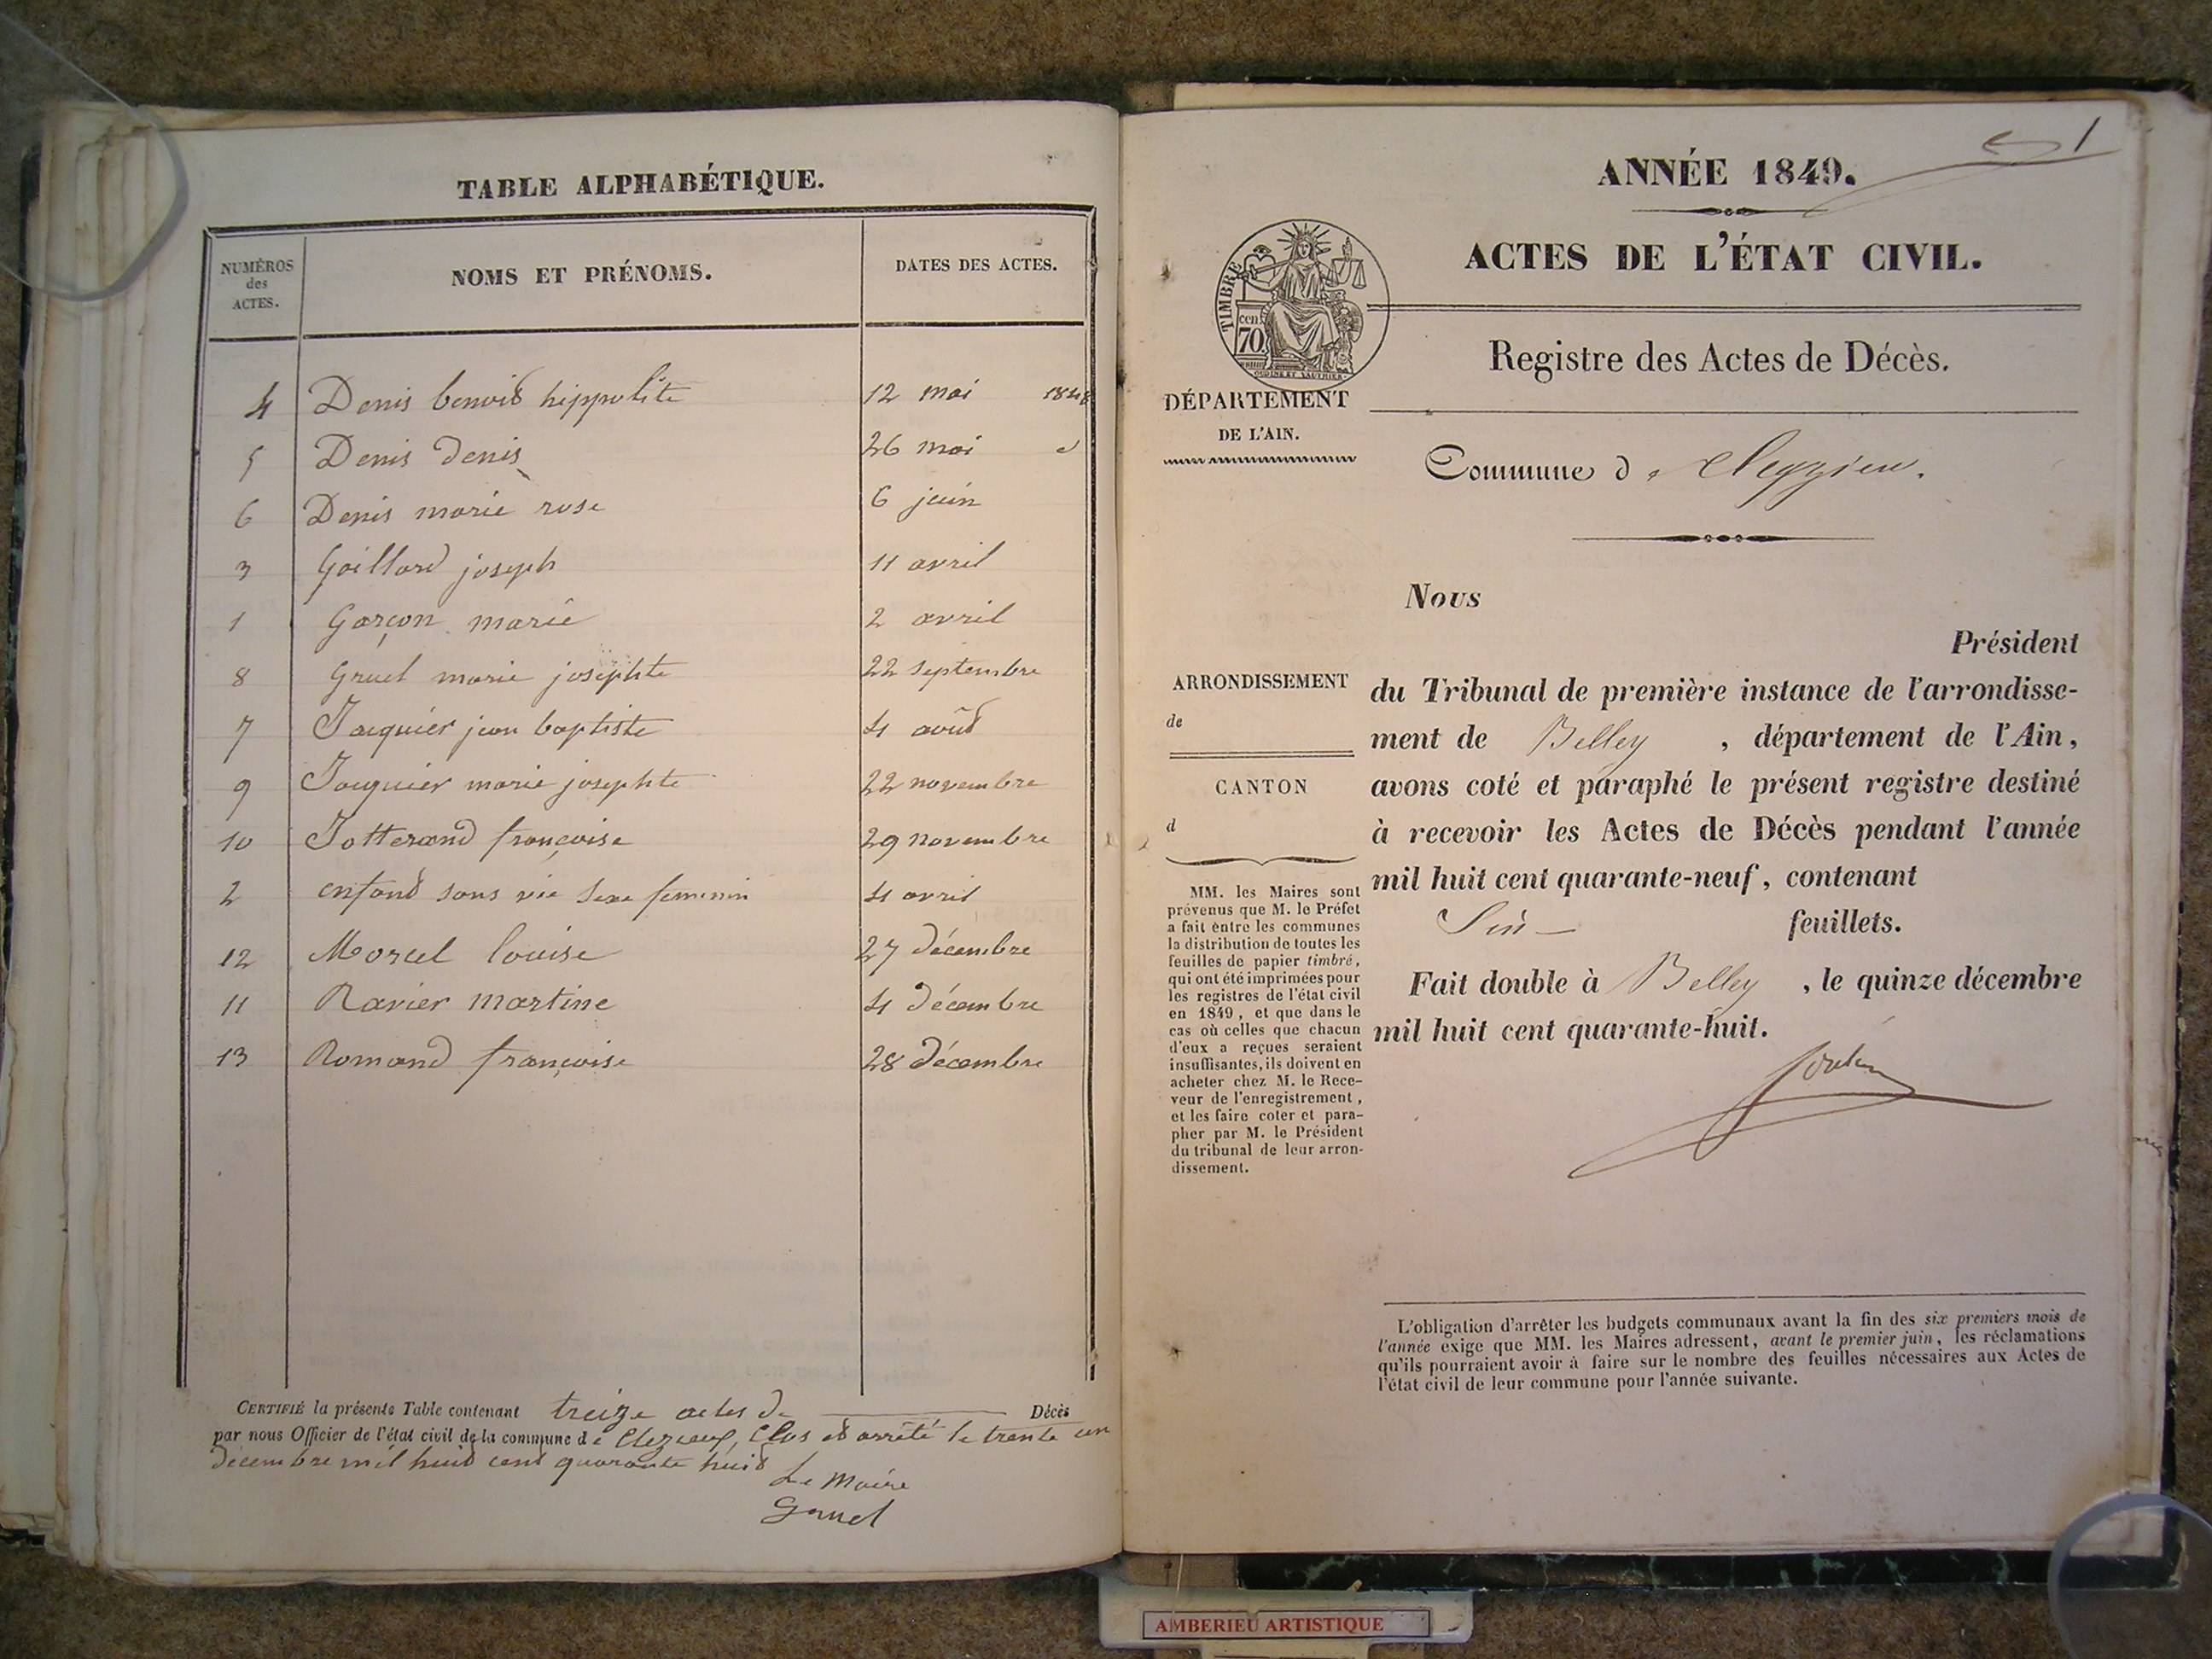 TABLE ALPHABÉTIQUE.
NUMÉROS des ACTES.
NOMS ET PRÉNOMS.
DATES DES ACTES.
4 Denis benoit hippolite 12 mai 1848
5 Denis denis 26 mai d
6 Denis marie rose 6 juin
3 Gaillard joseph 11 avril
1 Garçon marie 2 avril
8 Gruel marie josephte 22 septembre
7 Jacquier jean baptiste 4 août
9 Jacquier marie josephte 22 novembre
10 Jotterand françoise 29 novembre
2 enfant sans vie sexe feminin 4 avril
12 Morcel louise 27 décembre
11 Ravier martine 4 décembre
13 Romand françoise 28 décembre
CERTIFIÉ la présente Table contenant treize actes de Décès
par nous Officier de l'état civil de la commune de Cleyzieu, Clos et arrêté le trente un
décembre mil huit cent quarante huit
Le Maire
Gruel
1
ANNÉE 1849.
ACTES DE L'ÉTAT CIVIL.
TIMBRE
cen.
70
Registre des Actes de Décès.
DÉPARTEMENT
DE L'AIN.
Commune de Cleyzieu.
Nous
Président
du Tribunal de première instance de l'arrondisse-
ment de Belley , département de l'Ain,
avons coté et paraphé le présent registre destiné
à recevoir les Actes de Décès pendant l'année
mil huit cent quarante-neuf, contenant
Six feuillets.
Fait double à Belley , le quinze décembre
mil huit cent quarante-huit.
ARRONDISSEMENT
de
CANTON
d
MM. les Maires sont
prévenus que M. le Préfet
a fait entre les communes
la distribution de toutes les
feuilles de papier timbré,
qui ont été imprimées pour
les registres de l'état civil
en 1849, et que dans le
cas où celles que chacun
d'eux a reçues seraient
insuffisantes, ils doivent en
acheter chez M. le Rece-
veur de l'enregistrement,
et les faire coter et para-
pher par M. le Président
du tribunal de leur arron-
dissement.
L'obligation d'arrêter les budgets communaux avant la fin des six premiers mois de
l'année exige que MM. les Maires adressent, avant le premier juin, les réclamations
qu'ils pourraient avoir à faire sur le nombre des feuilles nécessaires aux Actes de
l'état civil de leur commune pour l'année suivante.
AMBERIEU ARTISTIQUE